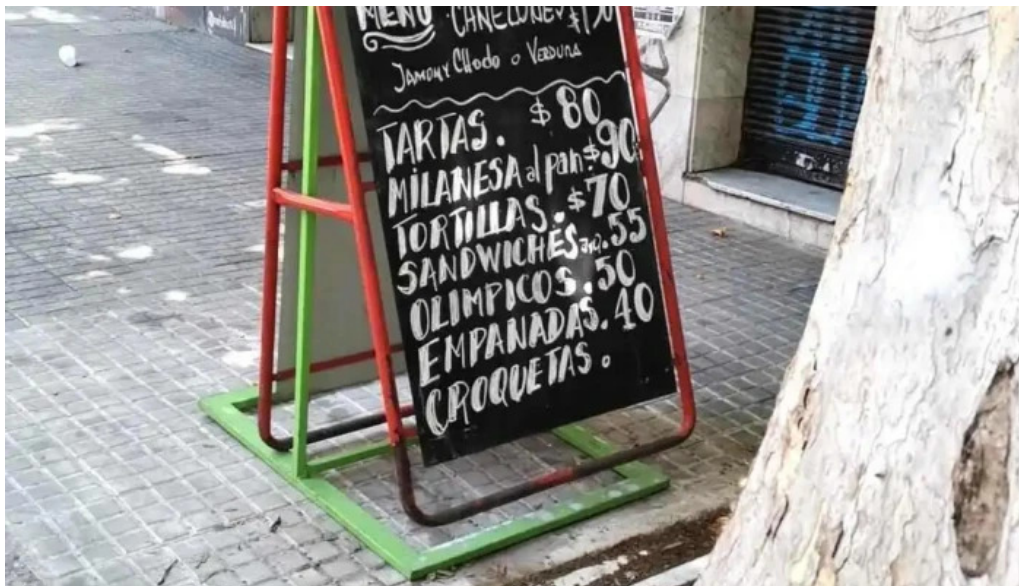 MENÚ · CANELONES $130
JAMON Y CHOClo o VERDURA
TARTAS. $80
MILANESA al pan $90
TORTILLAS. $70
SANDWICHES .55
OLIMPICOS. 50
EMPANADAS. 40
CROQUETAS.